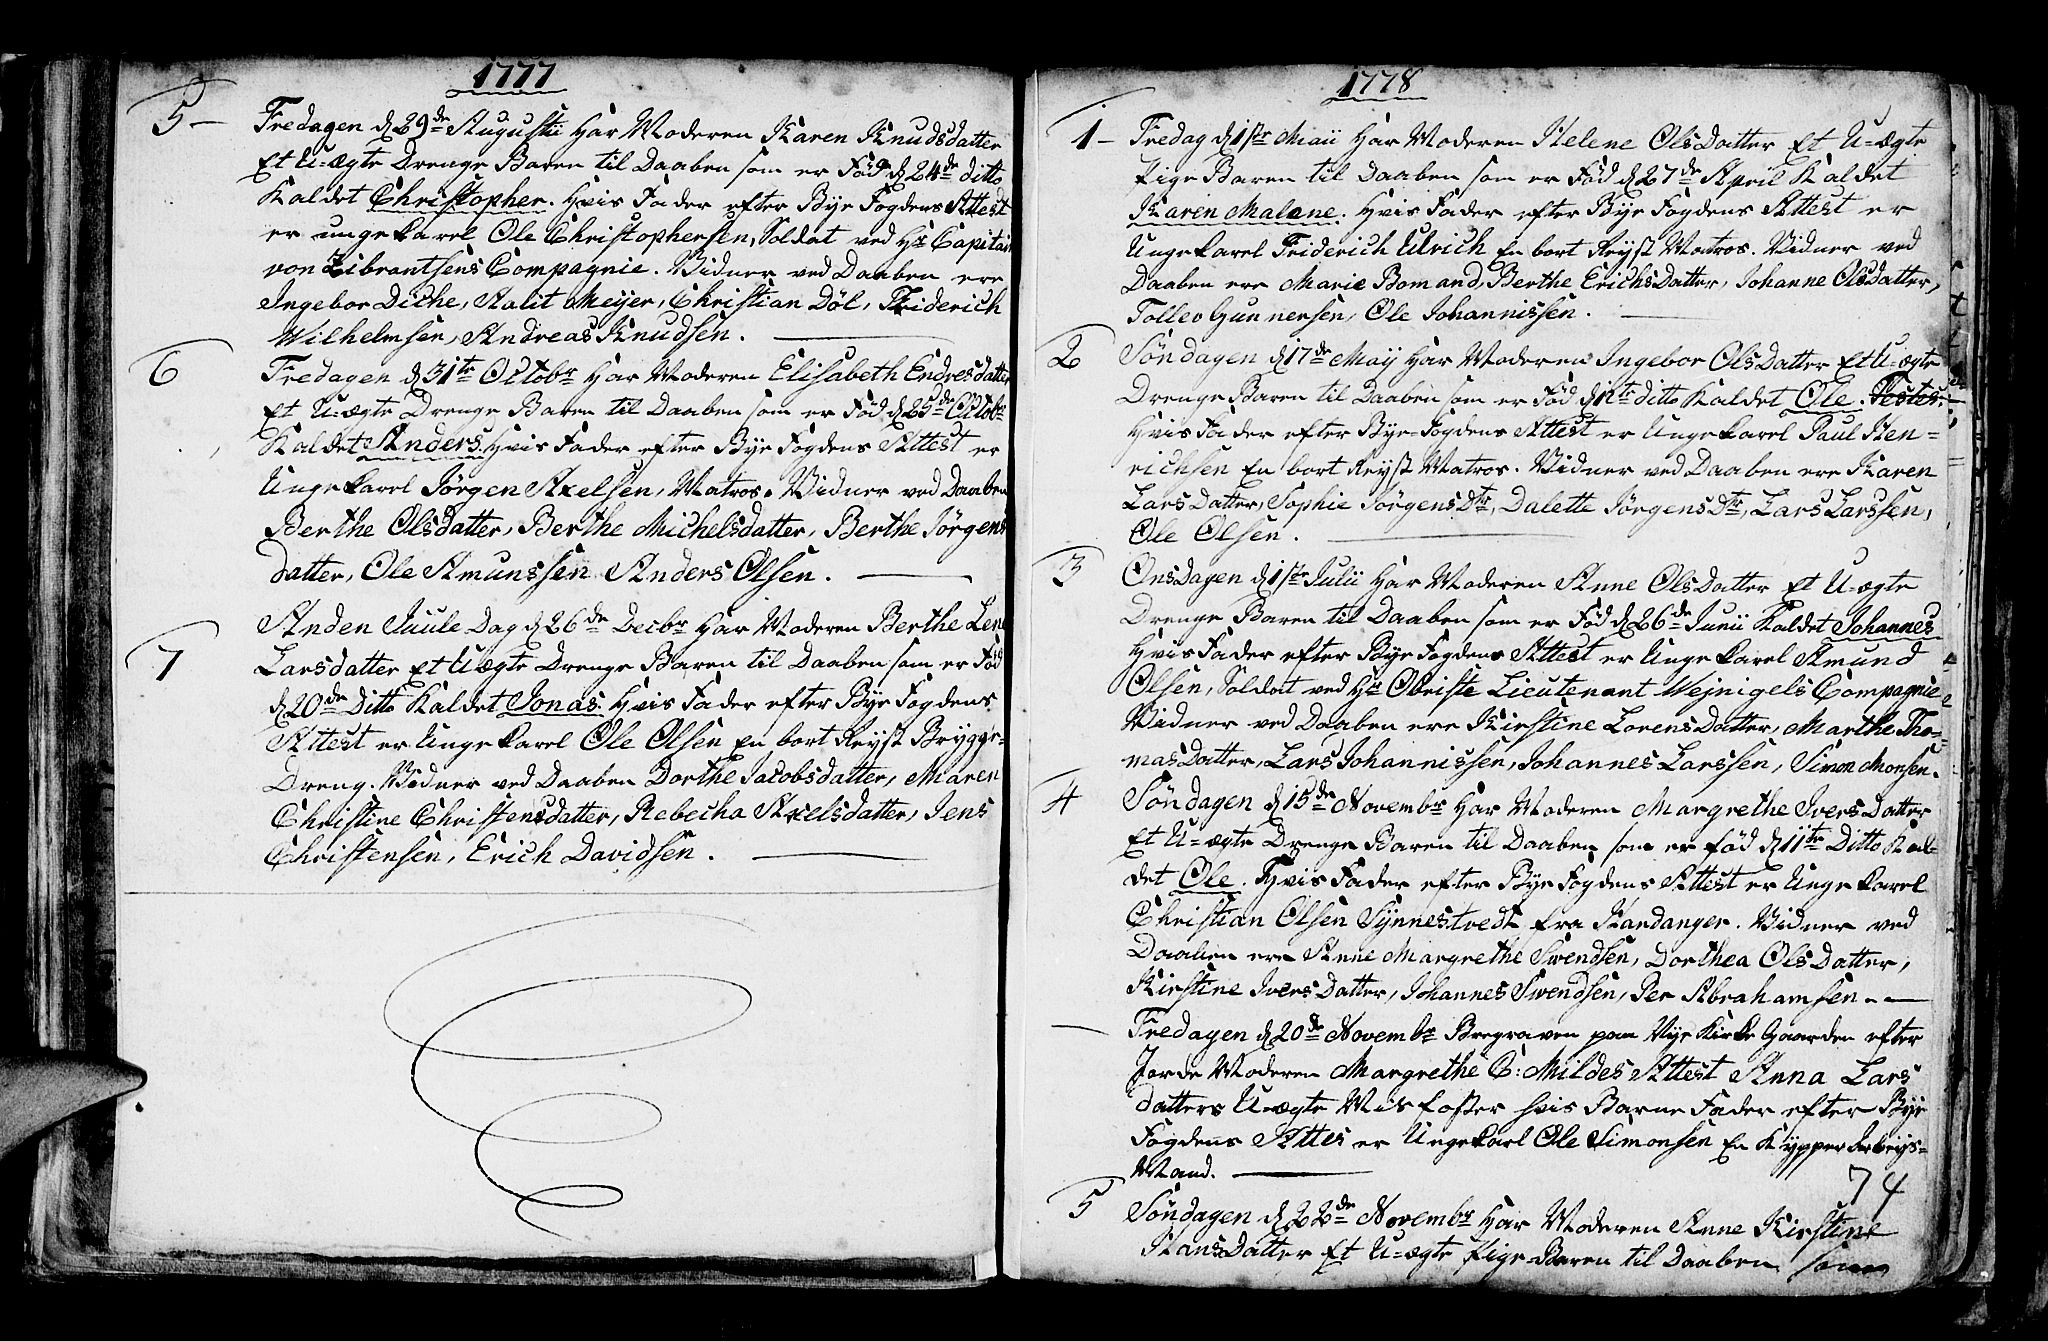 1777
5 — Fredagen d 29de Augusti Har Moderen Karen Knudsdatter
Et U=ægte Drenge Baren til Daaben som er Föd d 24de ditto
Kaldet Christopher. Hvis Fader efter Bye Fogdens Attest
er unge karel Ole Christophersen, Soldat ved Hr Capitain
von Zibrantsens Compagnie. Vidner ved Daaben ere
Ingebor Diche, Aalit Meyer, Christian Döl, Friderich
Wilhelmsen, Andreas Knudsen.
6 Fredagen d 31tr Octobr Har Moderen Elisabeth Endresdatter
Et U=ægte Drenge Baren til Daaben som er Föd d 25de Octobr
Kaldet Anders. Hvis Fader efter Bye Fogdens Attest er
Unge karel Jörgen Axelsen, Matros. Vidner ved Daaben
Berthe Olsdatter, Berthe Michelsdatter, Berthe Jörgens
datter, Ole Amunssen Anders Olsen.
7 Anden Juule Dag d 26de Decbr Har Moderen Berthe Lene
Larsdatter Et U=ægte Drenge Baren til Daaben som er Föd
d 20de Ditto Kaldet Jonas. Hvis Fader efter Bye Fogdens
Attest er Unge karel Ole Olsen En bort Reyst Brygge=
Dreng. Vidner ved Daaben Dorthe Jacobsdatter, Maren
Christine Christensdatter, Rebecha Axelsdatter, Jens
Christensen, Erich Davidsen.
1778
1 — Fredag d 1str Maii Har Moderen Helene Ols Datter Et U=ægte
Pige Baren til Daaben som er Föd d 27de April Kaldet
Karen Malene. Hvis Fader efter Bye Fogdens Attest er
Ungekarel Friderich Ulrich En bort Reyst Matros. Vidner ved
Daaben ere Marie Bomand, Berthe Erichs Datter, Johanne Olsdatter,
Tollev Gunnersen, Ole Johannissen.
2 Söndagen d 17de May Har Moderen Ingebor Ols Datter Et U=ægte
Drenge Baren til Daaben som er Föd d 12tr ditto Kaldet Ole.
Hvis Fader efter Bye=Fogdens Attest er Ungekarel Paul Hen=
richsen En bort Reyst Matros. Vidner ved Daaben ere Karen
Lars Datter, Sophie Jörgens Dtr, Dalette Jörgens Dtr, Lars Larssen,
Ole Olsen.
3 Onsdagen d 1str Julii Har Moderen Anne Ols Datter Et U=ægte
Drenge Baren til Daaben som er Föd d 26de Junii Kaldet Johannes
Hvis Fader efter Bye Fogdens Attest er Unge karel Amund
Olsen, Soldat ved Hr Obriste Lieutenant Wejnigels Compagnie
Vidner ved Daaben ere Kirstine Lorens Datter, Marthe Tho=
mas Datter, Lars Johannissen, Johannes Larssen, Simon Monsen.
4 Söndagen d 15de Novembr Har Moderen Margrethe Ivers Datter
Et U=ægte Drenge Baren til Daaben som er föd d 11tr Ditto Kal=
det Ole. Hvis Fader efter Bye Fogdens Attest er Unge karel
Christian Olsen Synnestvedt fra Hardanger. Vidner ved
Daaben ere Anne Margrethe Swendsen, Dorthea Ols Datter,
Kirstine Ivers Datter, Johannes Swendsen, Per Abrahamsen. —
— Fredagen d 20de Novembr Begraven paa Nye Kirke Gaarden efter
Jorde Moderen Margrethe C: Mildes Attest Anna Lars
datters U=ægte Misfoster hvis Barne Fader efter Bye
Fogdens Attes er Ungekarl Ole Simonsen En Kypper Arbeyds=
Mand.
74
5 Söndagen d 22de Novembr Har Moderen Anne Kirstine
Hans Datter Et U=ægte Pige Baren til Daaben som